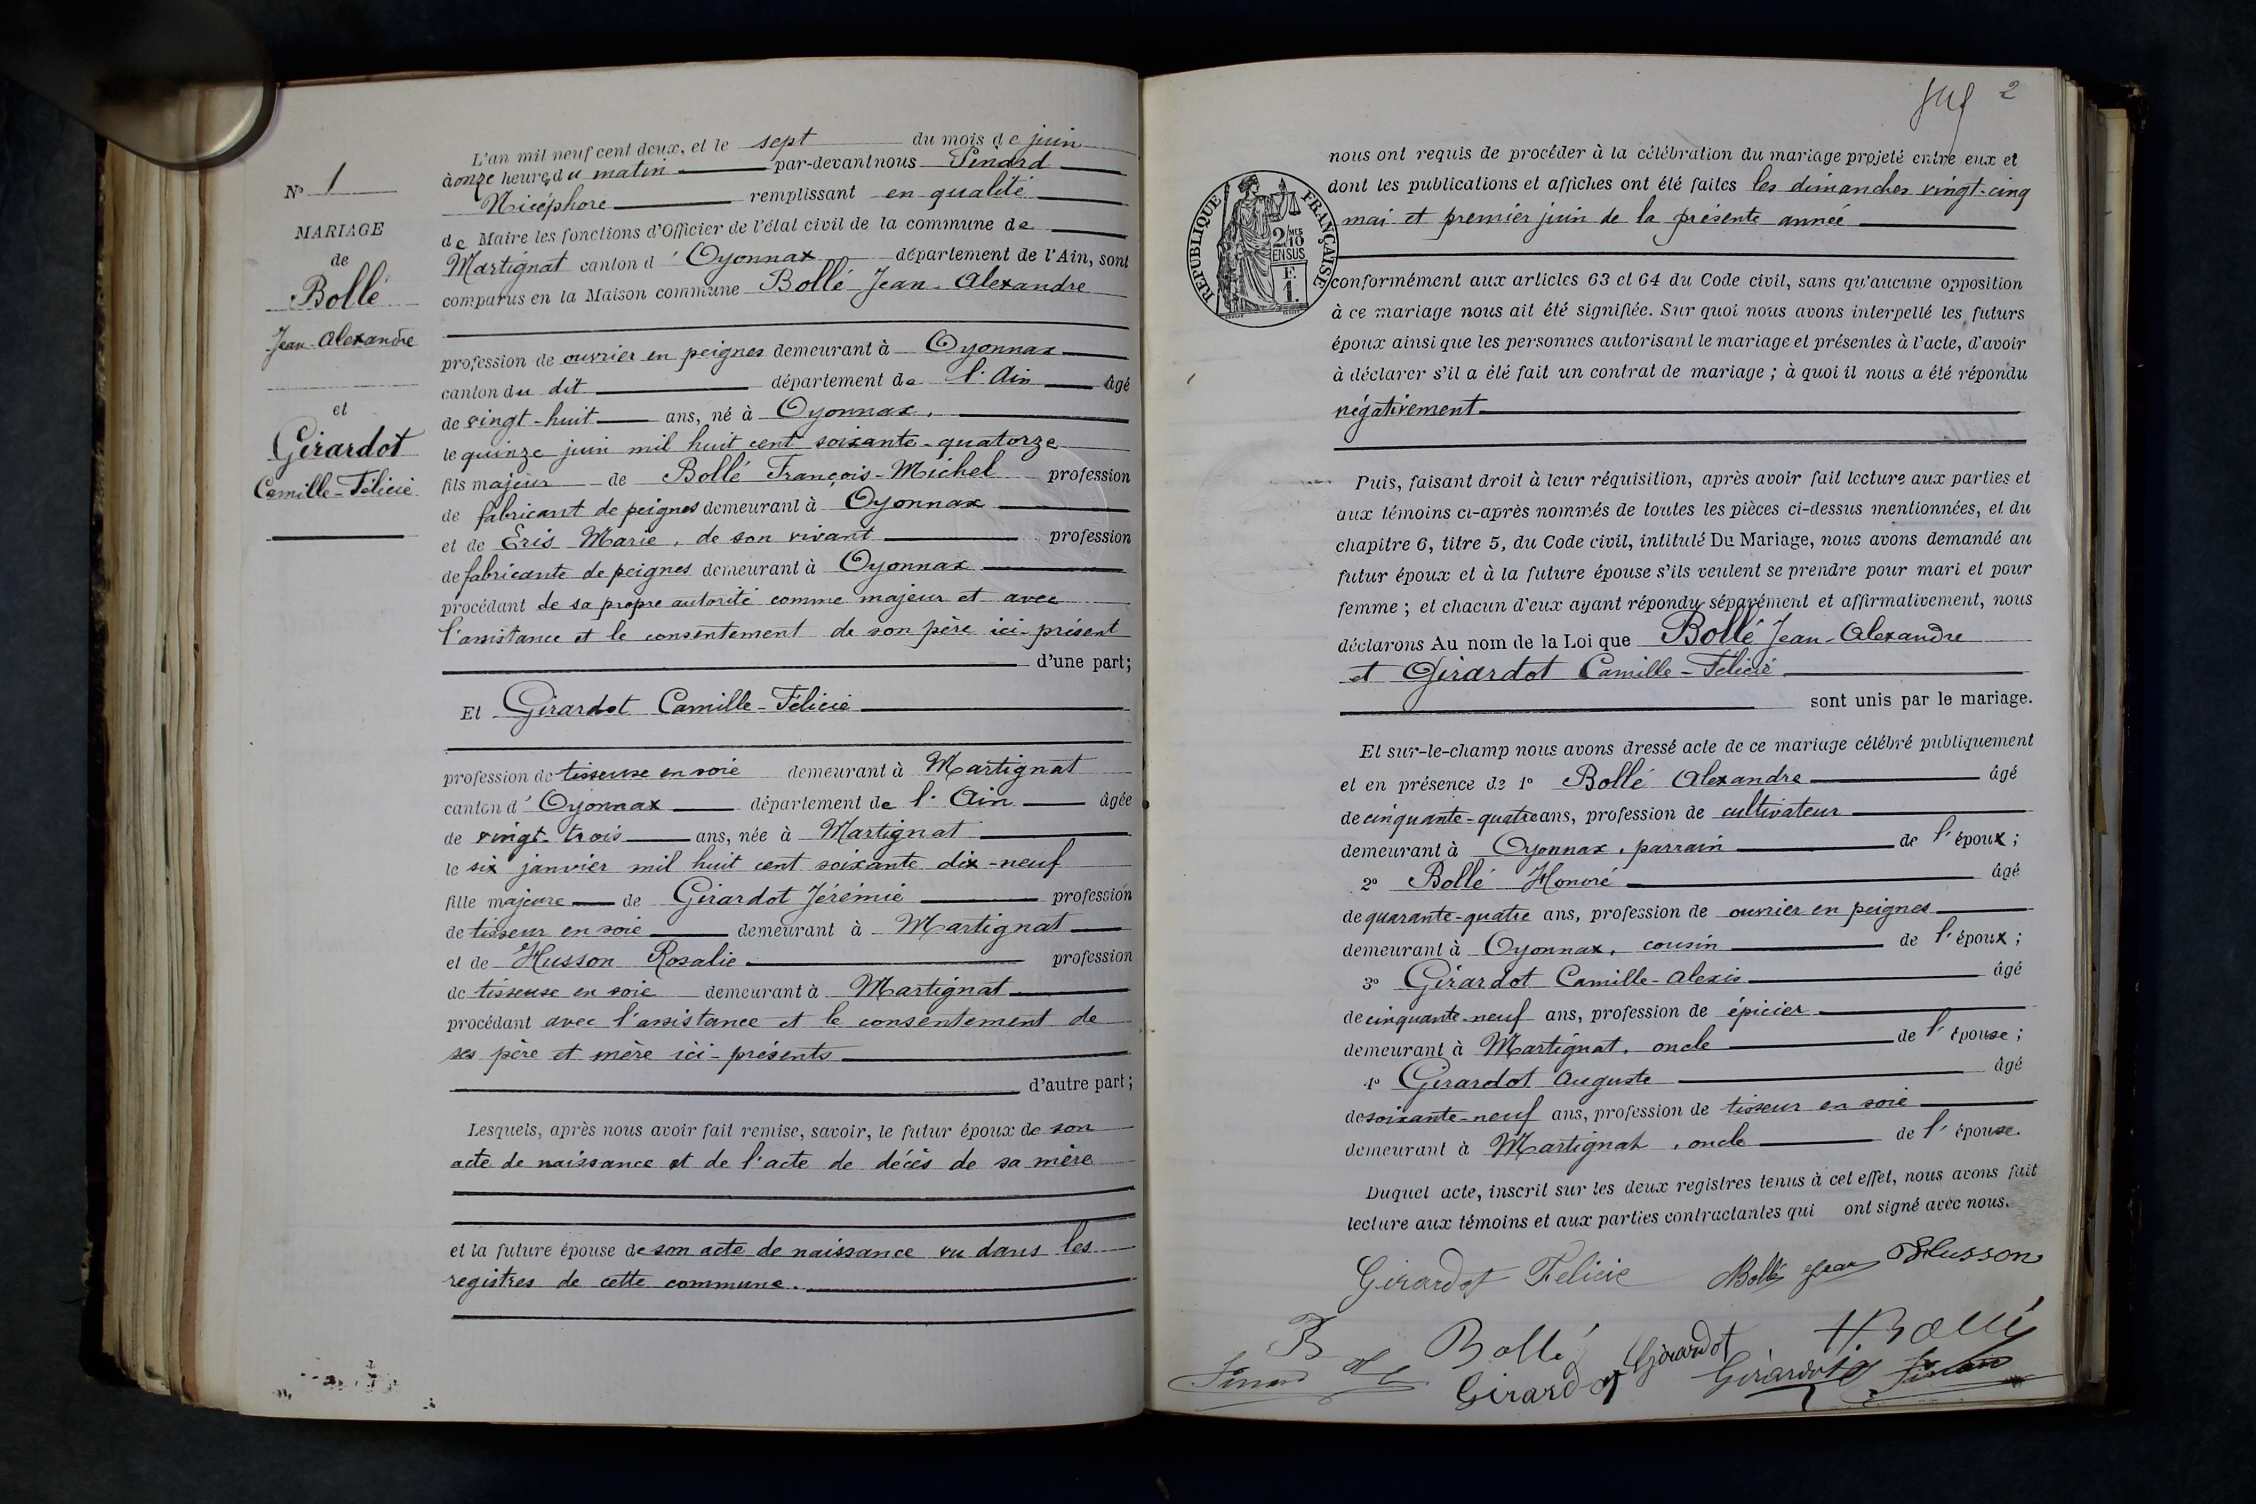 N° 1
MARIAGE
de
Bollé
Jean-Alexandre
et
Girardot
Camille-Félicie
L'an mil neuf cent deux, et le sept du mois de juin
à onze heures du matin par-devant nous Pénard
Nicéphore remplissant en qualité
de Maire les fonctions d'Officier de l'état civil de la commune de
Martignat canton d'Oyonnax département de l'Ain, sont
comparus en la Maison commune Bollé Jean-Alexandre
profession de ouvrier en peignes demeurant à Oyonnax
canton du dit département de l'Ain âgé
de vingt-huit ans, né à Oyonnax,
le quinze juin mil huit cent soixante-quatorze
fils majeur de Bollé François-Michel profession
de fabricant de peignes demeurant à Oyonnax
et de Eris Marie, de son vivant profession
de fabricante de peignes demeurant à Oyonnax
procédant de sa propre autorité comme majeur et avec
l'assistance et le consentement de son père ici-présent
d'une part;
Et Girardot Camille-Félicie
profession de tisseuse en soie demeurant à Martignat
canton d'Oyonnax département de l'Ain âgée
de vingt-trois ans, née à Martignat
le six janvier mil huit cent soixante dix-neuf
fille majeure de Girardot Jérémie profession
de tisseur en soie demeurant à Martignat
et de Husson Rosalie profession
de tisseuse en soie demeurant à Martignat
procédant avec l'assistance et le consentement de
ses père et mère ici-présents
d'autre part;
Lesquels, après nous avoir fait remise, savoir, le futur époux de son
acte de naissance et de l'acte de décès de sa mère
et la future épouse de son acte de naissance vu dans les
registres de cette commune.
2
RÉPUBLIQUE FRANÇAISE
2/10 MES
EN SUS
F.
1.
nous ont requis de procéder à la célébration du mariage projeté entre eux et
dont les publications et affiches ont été faites les dimanches vingt-cinq
mai et premier juin de la présente année
conformément aux articles 63 et 64 du Code civil, sans qu'aucune opposition
à ce mariage nous ait été signifiée. Sur quoi nous avons interpellé les futurs
époux ainsi que les personnes autorisant le mariage et présentes à l'acte, d'avoir
à déclarer s'il a été fait un contrat de mariage ; à quoi il nous a été répondu
négativement
Puis, faisant droit à leur réquisition, après avoir fait lecture aux parties et
aux témoins ci-après nommés de toutes les pièces ci-dessus mentionnées, et du
chapitre 6, titre 5, du Code civil, intitulé Du Mariage, nous avons demandé au
futur époux et à la future épouse s'ils veulent se prendre pour mari et pour
femme ; et chacun d'eux ayant répondu séparément et affirmativement, nous
déclarons Au nom de la Loi que Bollé Jean-Alexandre
et Girardot Camille-Félicie
sont unis par le mariage.
Et sur-le-champ nous avons dressé acte de ce mariage célébré publiquement
et en présence de 1° Bollé Alexandre âgé
de cinquante-quatre ans, profession de cultivateur
demeurant à Oyonnax, parrain de l'époux ;
2° Bollé Honoré âgé
de quarante-quatre ans, profession de ouvrier en peignes
demeurant à Oyonnax, cousin de l'époux ;
3° Girardot Camille-Alexis âgé
de cinquante-neuf ans, profession de épicier
demeurant à Martignat, oncle de l'épouse ;
4° Girardot Auguste âgé
de soixante-neuf ans, profession de tisseur en soie
demeurant à Martignat, oncle de l'épouse.
Duquel acte, inscrit sur les deux registres tenus à cet effet, nous avons fait
lecture aux témoins et aux parties contractantes qui ont signé avec nous.
Girardot Felicie Bollé Jean Husson
B Bollé Girardot HBollé
Girardot Girardot